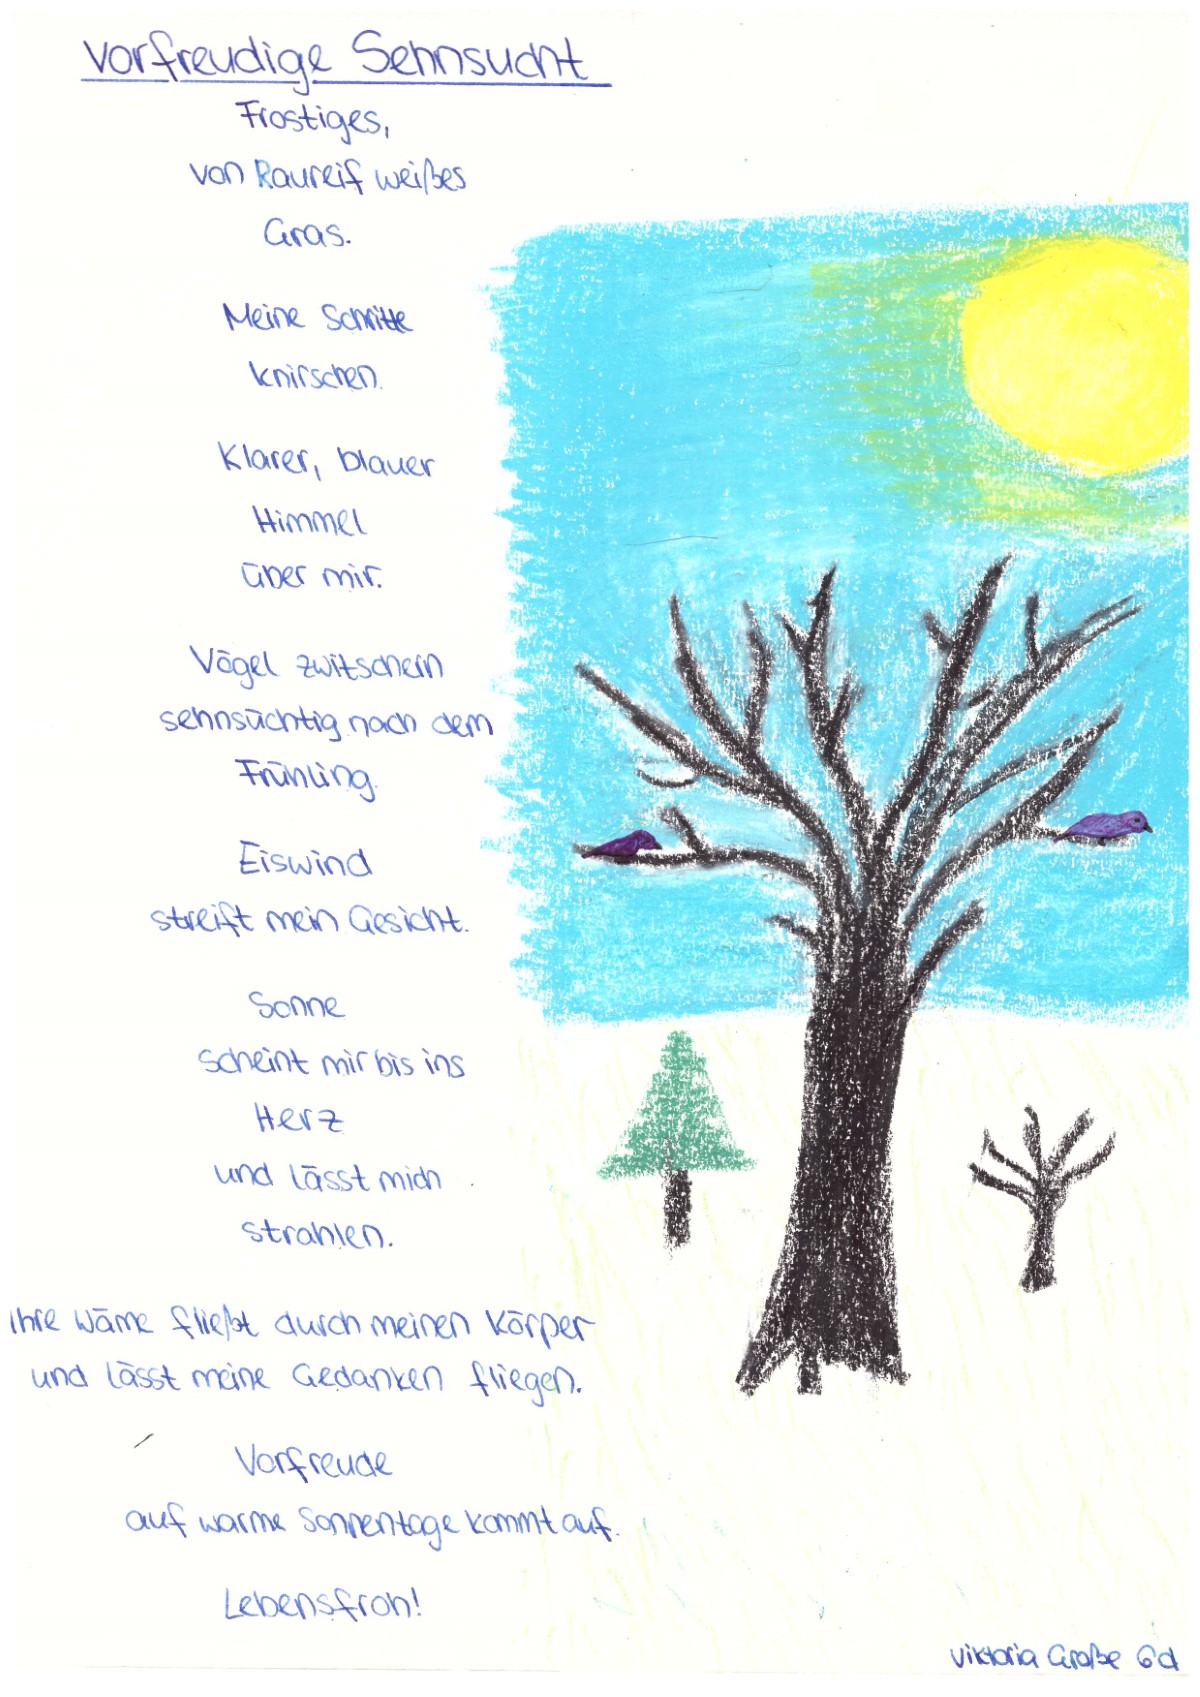 Vorfreudige Sehnsucht
Frostiges,
von Raureif weißes
Gras.
Meine Schritte
knirschen.
Klarer, blauer
Himmel
über mir.
Vögel zwitschern
sehnsüchtig nach dem
Frühling.
Eiswind
streift mein Gesicht.
Sonne
scheint mir bis ins
Herz
und lässt mich
strahlen.
Ihre Wäme fließt durch meinen Körper
und lässt meine Gedanken fliegen.
Vorfreude
auf warme Sonnentage kommt auf.
Lebensfroh!
Viktoria Große 6d